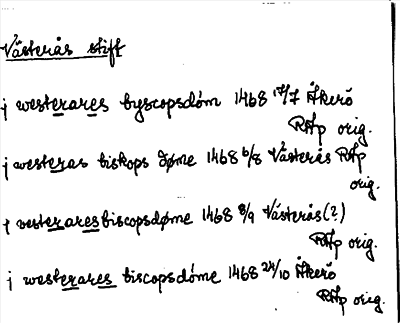 Västerås stift
j westerares byscopsdóm 1468 17/7 Åkerö
RAp orig.
j westeras biskops døme 1468 6/8 Västerås RAp
orig.
j vesteraresbiscopsdøme 1468 8/9 Västerås(?)
RAp orig.
j westerares biscopsdóme 1468 24/10 Åkerö
RAp orig.